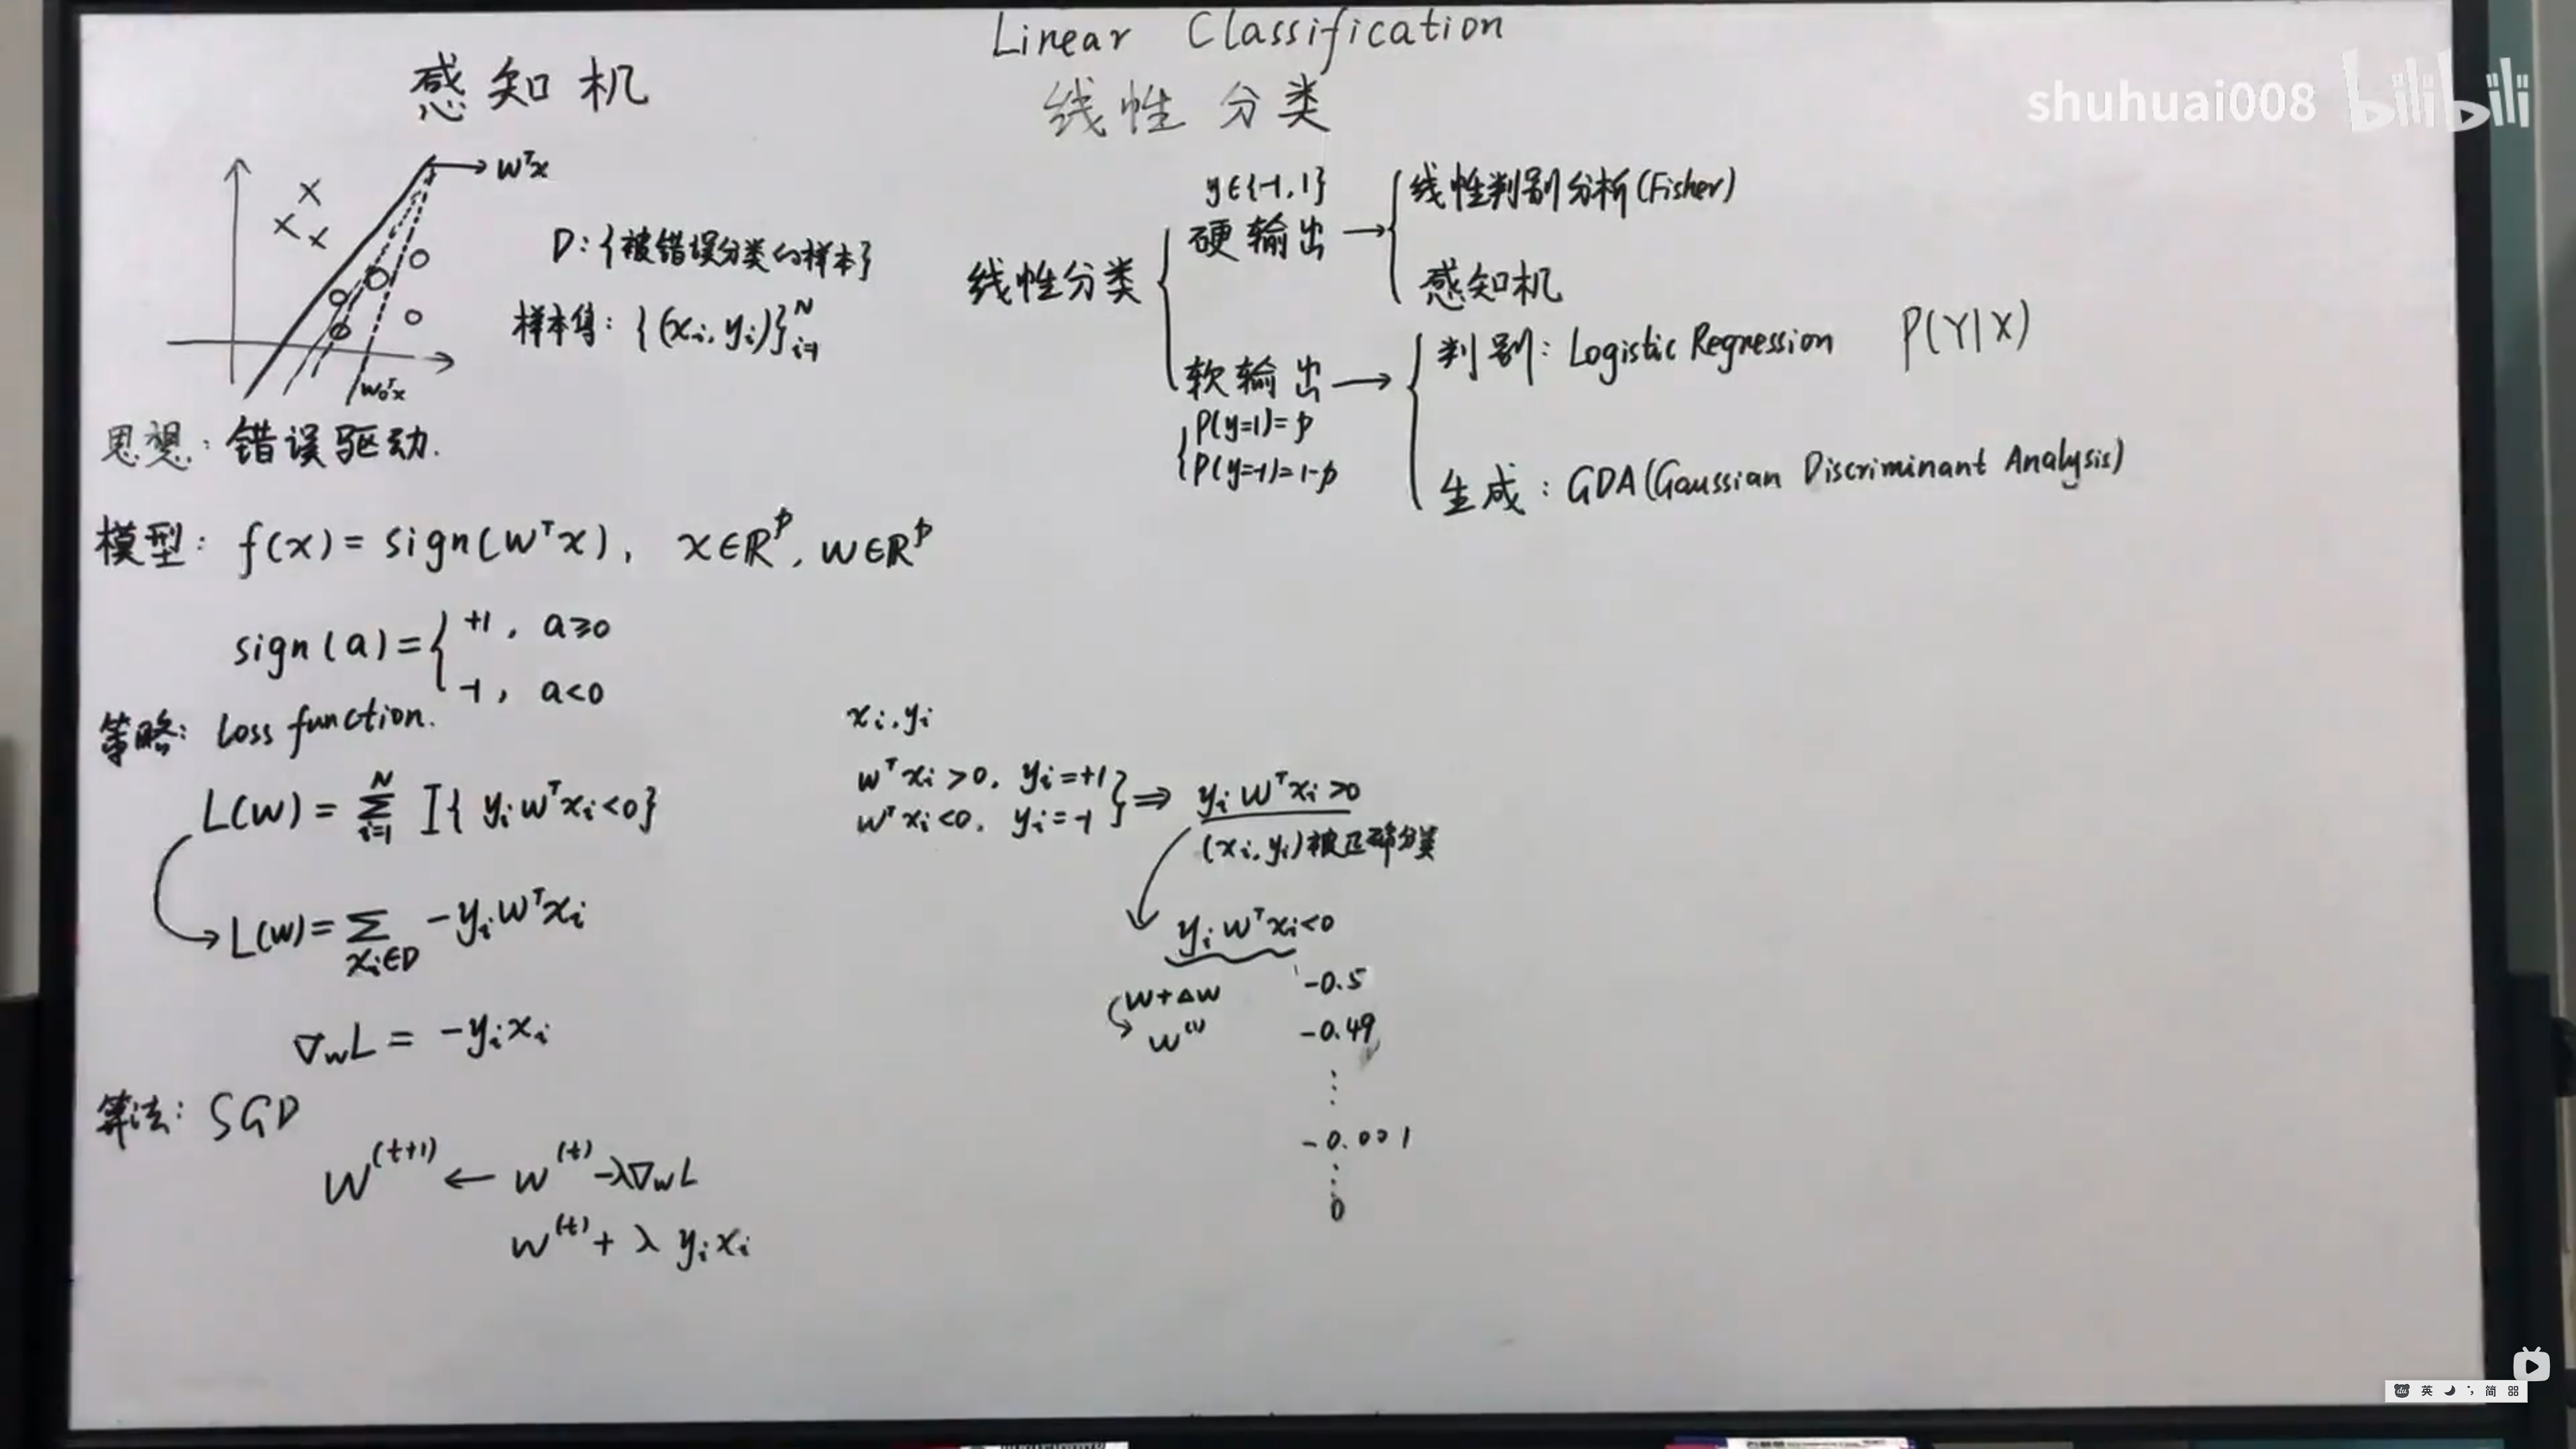 Linear Classification
线性分类
shuhuai008 bilibili
感知机
wᵀx
w₀ᵀx
D: {被错误分类的样本}
样本集: {(xᵢ, yᵢ)}ᵢ₌₁ᴺ
思想: 错误驱动.
模型: f(x) = sign(wᵀx), x∈ℝᵖ, w∈ℝᵖ
sign(a) = { +1, a≥0
-1, a<0
策略: loss function.
L(w) = ∑ᵢ₌₁ᴺ I{ yᵢwᵀxᵢ<0}
L(w) = ∑_{xᵢ∈D} -yᵢwᵀxᵢ
∇wL = -yᵢxᵢ
算法: SGD
w⁽ᵗ⁺¹⁾ ← w⁽ᵗ⁾-λ∇wL
w⁽ᵗ⁾ + λ yᵢxᵢ
线性分类
y∈{-1, 1}
硬输出 →
线性判别分析(Fisher)
感知机
软输出 →
P(y=1)=p
P(y=-1)=1-p
判别: Logistic Regression P(Y|X)
生成: GDA(Gaussian Discriminant Analysis)
xᵢ, yᵢ
wᵀxᵢ>0, yᵢ=+1
wᵀxᵢ<0, yᵢ=-1
⇒ yᵢwᵀxᵢ>0
(xᵢ, yᵢ)被正确分类
yᵢwᵀxᵢ<0
w+△w
w⁽¹⁾
-0.5
-0.49
⋮
-0.001
⋮
0
英 简